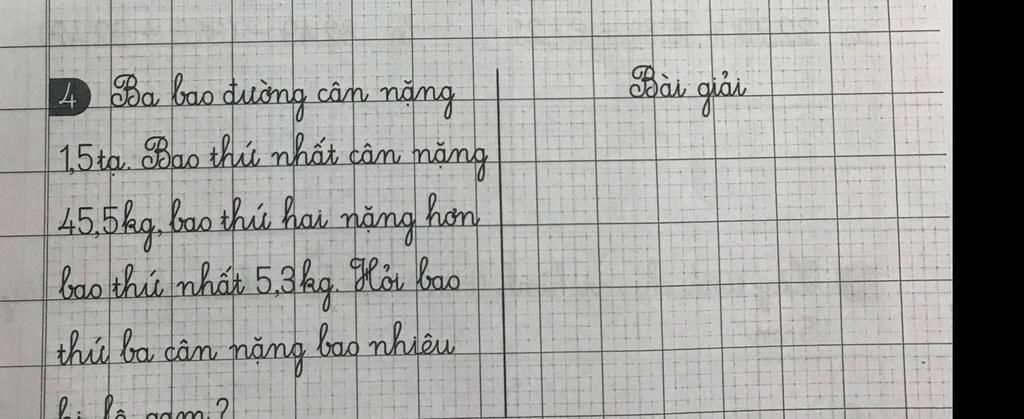 4 Ba bao đường cân nặng
1,5 tạ. Bao thứ nhất cân nặng
45,5kg, bao thứ hai nặng hơn
bao thứ nhất 5,3kg. Hỏi bao
thứ ba cân nặng bao nhiêu
ki-lô-gam?
Bài giải